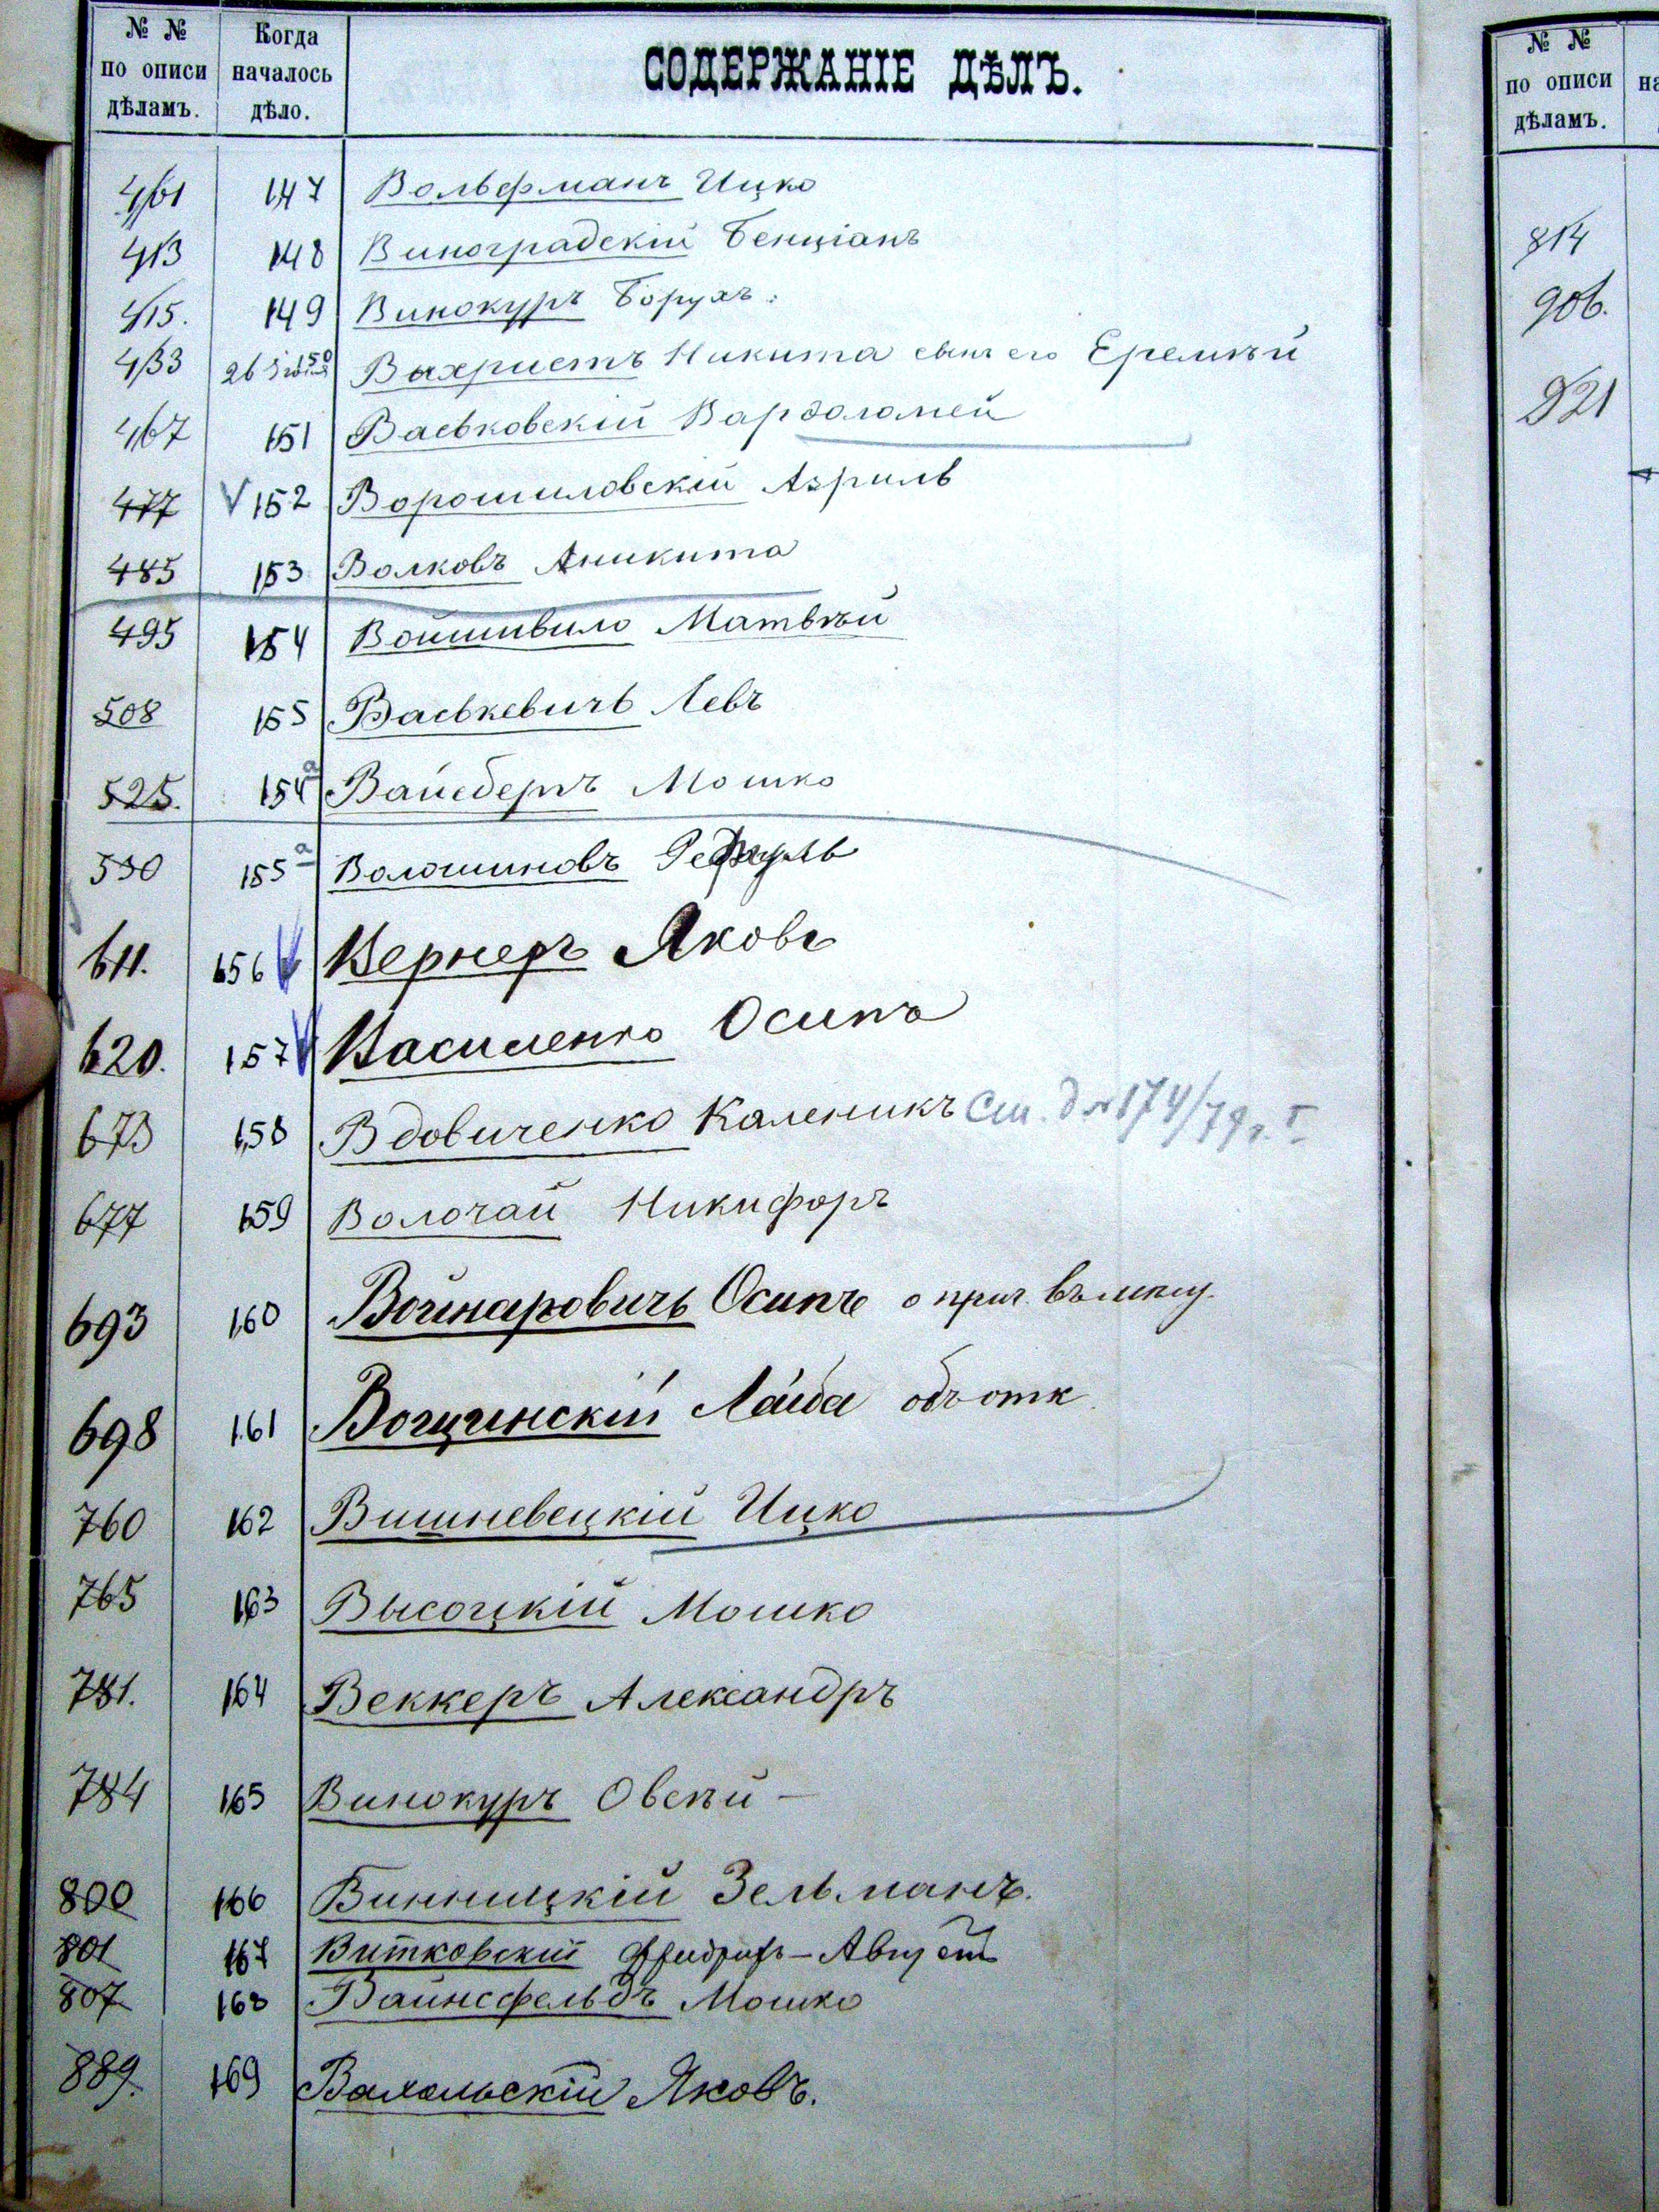 № № по описи дѣламъ.
Когда началось дѣло.
СОДЕРЖАНІЕ ДѢЛЪ.
401 147 Вольфманъ Ицко
413 148 Виноградскій Бенціанъ
415. 149 Винокуръ Борухъ.
433 150 26 Выхристъ Никита сынъ его Еремѣй
467 151 Васьковскій Варфоломей
477 152 Ворошиловскій Азриль
485 153 Волковъ Аникита
495 154 Войшвило Матвѣй
508 155 Васькевичъ Левъ
525. 154а Вайсберъ Мошко
530 155а Волошиновъ
611. 156 Вернеръ Яковъ
620. 157 Василенко Осипъ
673 158 Вдовиченко Каленикъ См. д № 174/79 г. I
677 159 Волочай Никифоръ
693 160 Войнаровичъ Осипъ о прич.
698 161 Вощинскій Лейба объ отк
760 162 Вишневецкій Ицко
765 163 Высоцкій Мошко
781. 164 Веккеръ Александръ
784 165 Винокуръ Овсѣй –
800 166 Винницкій Зельманъ.
801 167 Витковскій Фридрихъ-Августъ
807 168 Вайнсфельдъ Мошко
889. 169 Яковъ.
№ № по описи дѣламъ.
на
814
906.
921